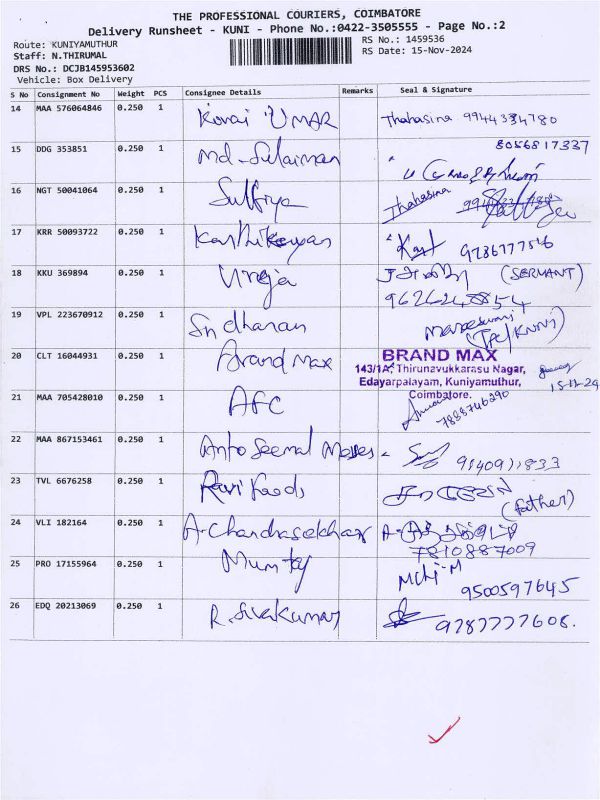 THE PROFESSIONAL COURIERS, COIMBATORE
Delivery Runsheet - KUNI - Phone No.:0422-3505555 - Page No.:2
Route: KUNIYAMUTHUR
RS No.: 1459536
Staff: N.THIRUMAL
RS Date: 15-Nov-2024
DRS No.: DCJB145953602
Vehicle: Box Delivery
S No Consignment No Weight PCS Consignee Details Remarks Seal & Signature
14 MAA 576064846 0.250 1 Kovai UMAR Thahasina
15 DDG 353851 0.250 1 Md-Sulaiman 8056817337
16 NGT 50041064 0.250 1 Sulfiya Thahasina
17 KRR 50093722 0.250 1 Karthikeyan 9786777546
18 KKU 369894 0.250 1 (SERVANT)
19 VPL 223670912 0.250 1 Sridharan
20 CLT 16044931 0.250 1 Brand Max BRAND MAX
143/1A, Thirunavukkarasu Nagar,
Edayarpalayam, Kuniyamuthur,
Coimbatore.
15-11-24
21 MAA 705428010 0.250 1 AFC 7888746290
22 MAA 867153461 0.250 1 Anto
23 TVL 6676258 0.250 1 Ravi Foods (father)
24 VLI 182164 0.250 1 A-Chandrasekhar
7810887009
25 PRO 17155964 0.250 1 Mumtaj
9500597645
26 EDQ 20213069 0.250 1 R.Sivakumar 9787777608.